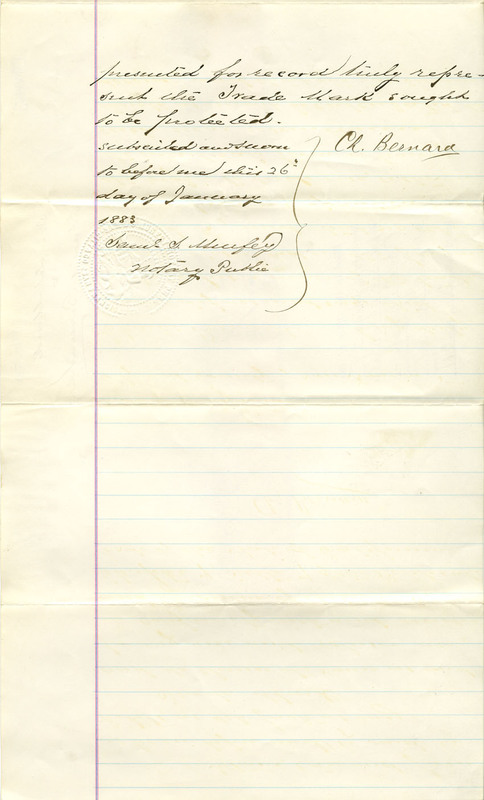 presented for record truly repre-
sent the Trade Mark sought
to be protected.
subscribed and sworn
to before me this 26"
day of January
1883
Ch. Bernard
Saml. S.
Notary Public